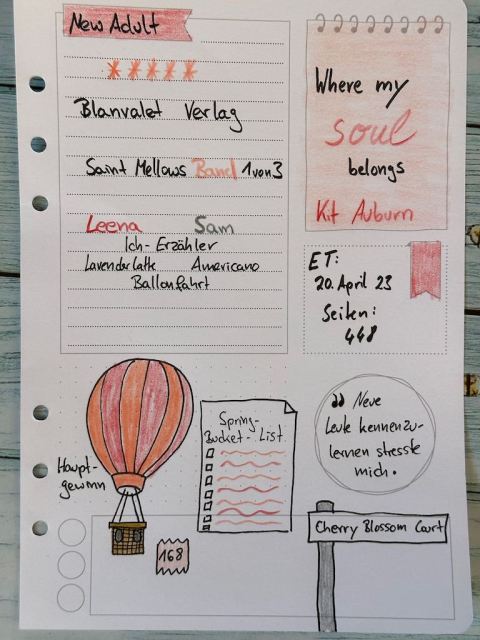 New Adult
Blanvalet Verlag
Saint Mellows Band 1 von 3
Leena Sam
Ich-Erzähler
Lavenderlatte Americano
Ballonfahrt
Where my
soul
belongs
Kit Auburn
ET:
20. April 23
Seiten:
448
Haupt-
gewinn
168
Spring-
Bucket-List
„ Neue
Leute kennenzu-
lernen stresste
mich.
Cherry Blossom Court